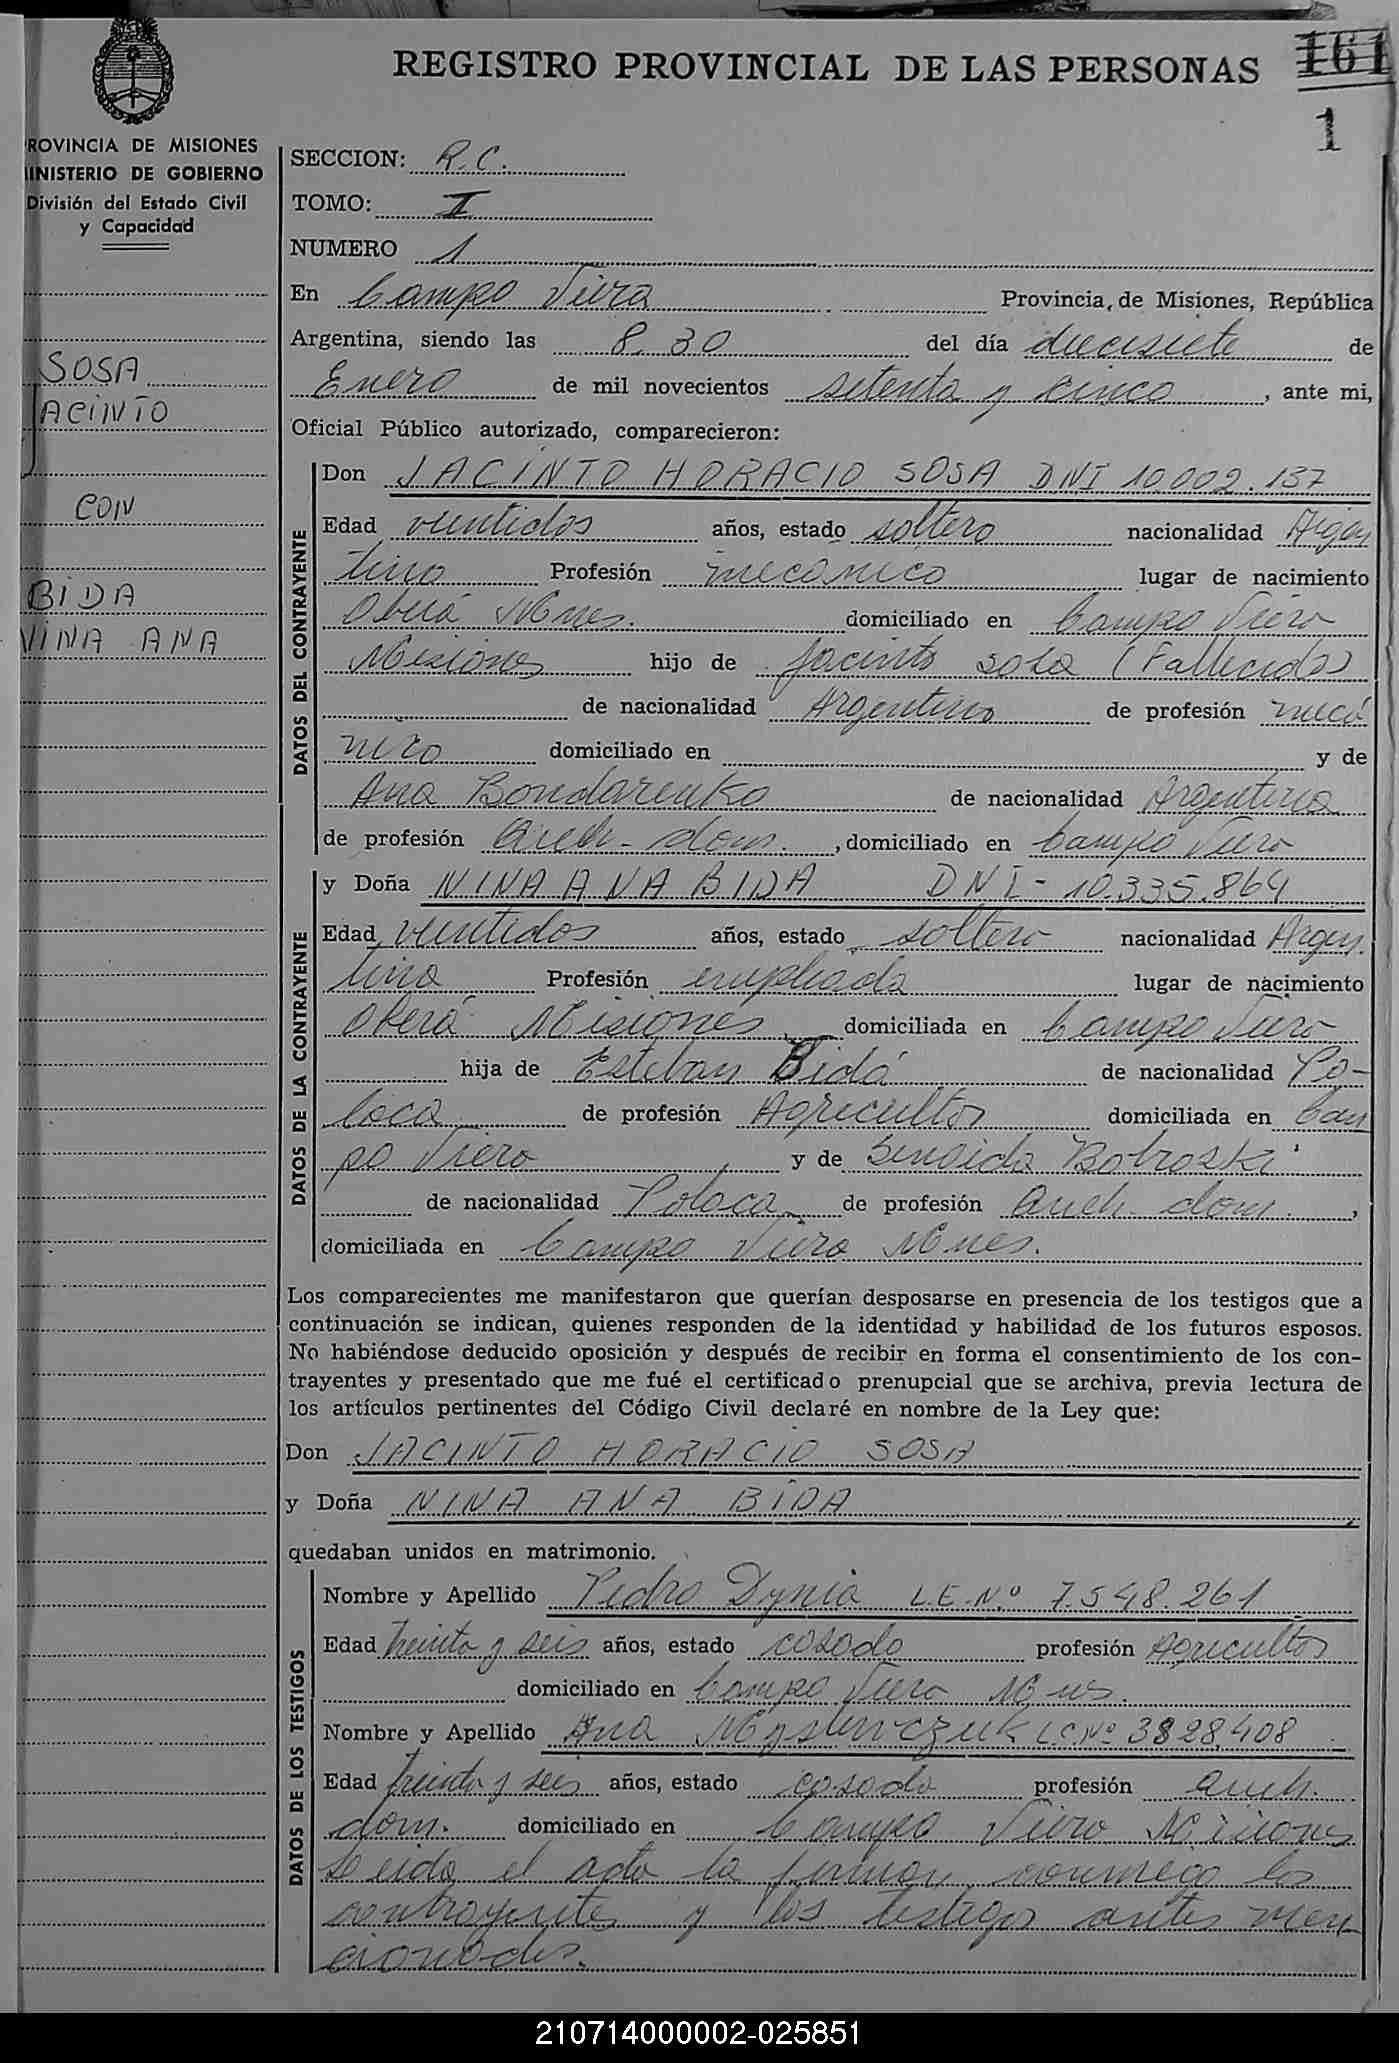 REGISTRO PROVINCIAL DE LAS PERSONAS
161
1
PROVINCIA DE MISIONES
MINISTERIO DE GOBIERNO
División del Estado Civil
y Capacidad
SOSA
JACINTO
CON
BIDA
NINA ANA
SECCION: R.C.
TOMO: I
NUMERO 1
En Campo Viera Provincia de Misiones, República
Argentina, siendo las 8.30 del día diecisiete de
Enero de mil novecientos setenta y cinco, ante mi,
Oficial Público autorizado, comparecieron:
DATOS DEL CONTRAYENTE
Don JACINTO HORACIO SOSA DNI 10.002.137
Edad veintidos años, estado soltero nacionalidad Argen
tino Profesión mecánico lugar de nacimiento
Oberá Mnes. domiciliado en Campo Viera
Misiones hijo de Jacinto Sosa (Fallecido)
de nacionalidad Argentino de profesión mecá
nico domiciliado en y de
Ana Bondarenko de nacionalidad Argentina
de profesión Queh. dom. , domiciliado en Campo Viera
DATOS DE LA CONTRAYENTE
y Doña NINA ANA BIDA DNI - 10.335.864
Edad veintidos años, estado soltera nacionalidad Argen.
tina Profesión empleada lugar de nacimiento
Oberá Misiones domiciliada en Campo Viera
hija de Esteban Bidá de nacionalidad Po-
laca de profesión Agricultor domiciliada en Cam
po Viera y de Senaida Botroski
de nacionalidad Polaca de profesión Queh. dom. ,
domiciliada en Campo Viera Mnes.
Los comparecientes me manifestaron que querían desposarse en presencia de los testigos que a
continuación se indican, quienes responden de la identidad y habilidad de los futuros esposos.
No habiéndose deducido oposición y después de recibir en forma el consentimiento de los con-
trayentes y presentado que me fué el certificado prenupcial que se archiva, previa lectura de
los artículos pertinentes del Código Civil declaré en nombre de la Ley que:
Don JACINTO HORACIO SOSA
y Doña NINA ANA BIDA
quedaban unidos en matrimonio.
DATOS DE LOS TESTIGOS
Nombre y Apellido Pedro Dynia L.E.Nº 7.548.261
Edad treinta y seis años, estado casado profesión Agricultor
domiciliado en Campo Viera Mnes.
Nombre y Apellido Ana L.C.Nº 3828.408
Edad treinta y seis años, estado casada profesión Queh.
dom. domiciliado en Campo Viera Misiones
Leida el acta la firman conmigo los
contrayentes y los testigos antes men
cionados.
210714000002-025851